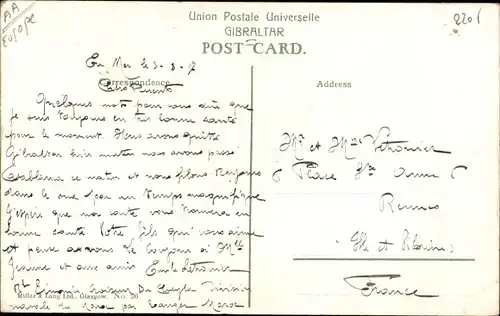 AA
Europe
Union Postale Universelle
GIBRALTAR
POST CARD.
2201
En Mer le 3-8-17
Correspondence
Address
Chers Parents
Quelques mots pour vous dire que
je suis toujours en très bonne santé
pour le moment. Nous avons quitté
Gibraltar hier matin nous avons passé
Casablanca ce matin et nous filons toujours
dans le sud par un temps magnifique
J'espère que ma carte vous trouvera en
bonne santé. Votre fils qui vous aime
et pense à vous Le Conjons à Mlle
Jeanne et aux amis Emile Letronnier
Croiseur Du Chayla Division
navale du Maroc par Tanger Maroc
Mr et Mme Letronnier
6 Place Ste Anne 6
Rennes
Ille et Vilaine
France
Millar & Lang Ltd., Glasgow. No. 20